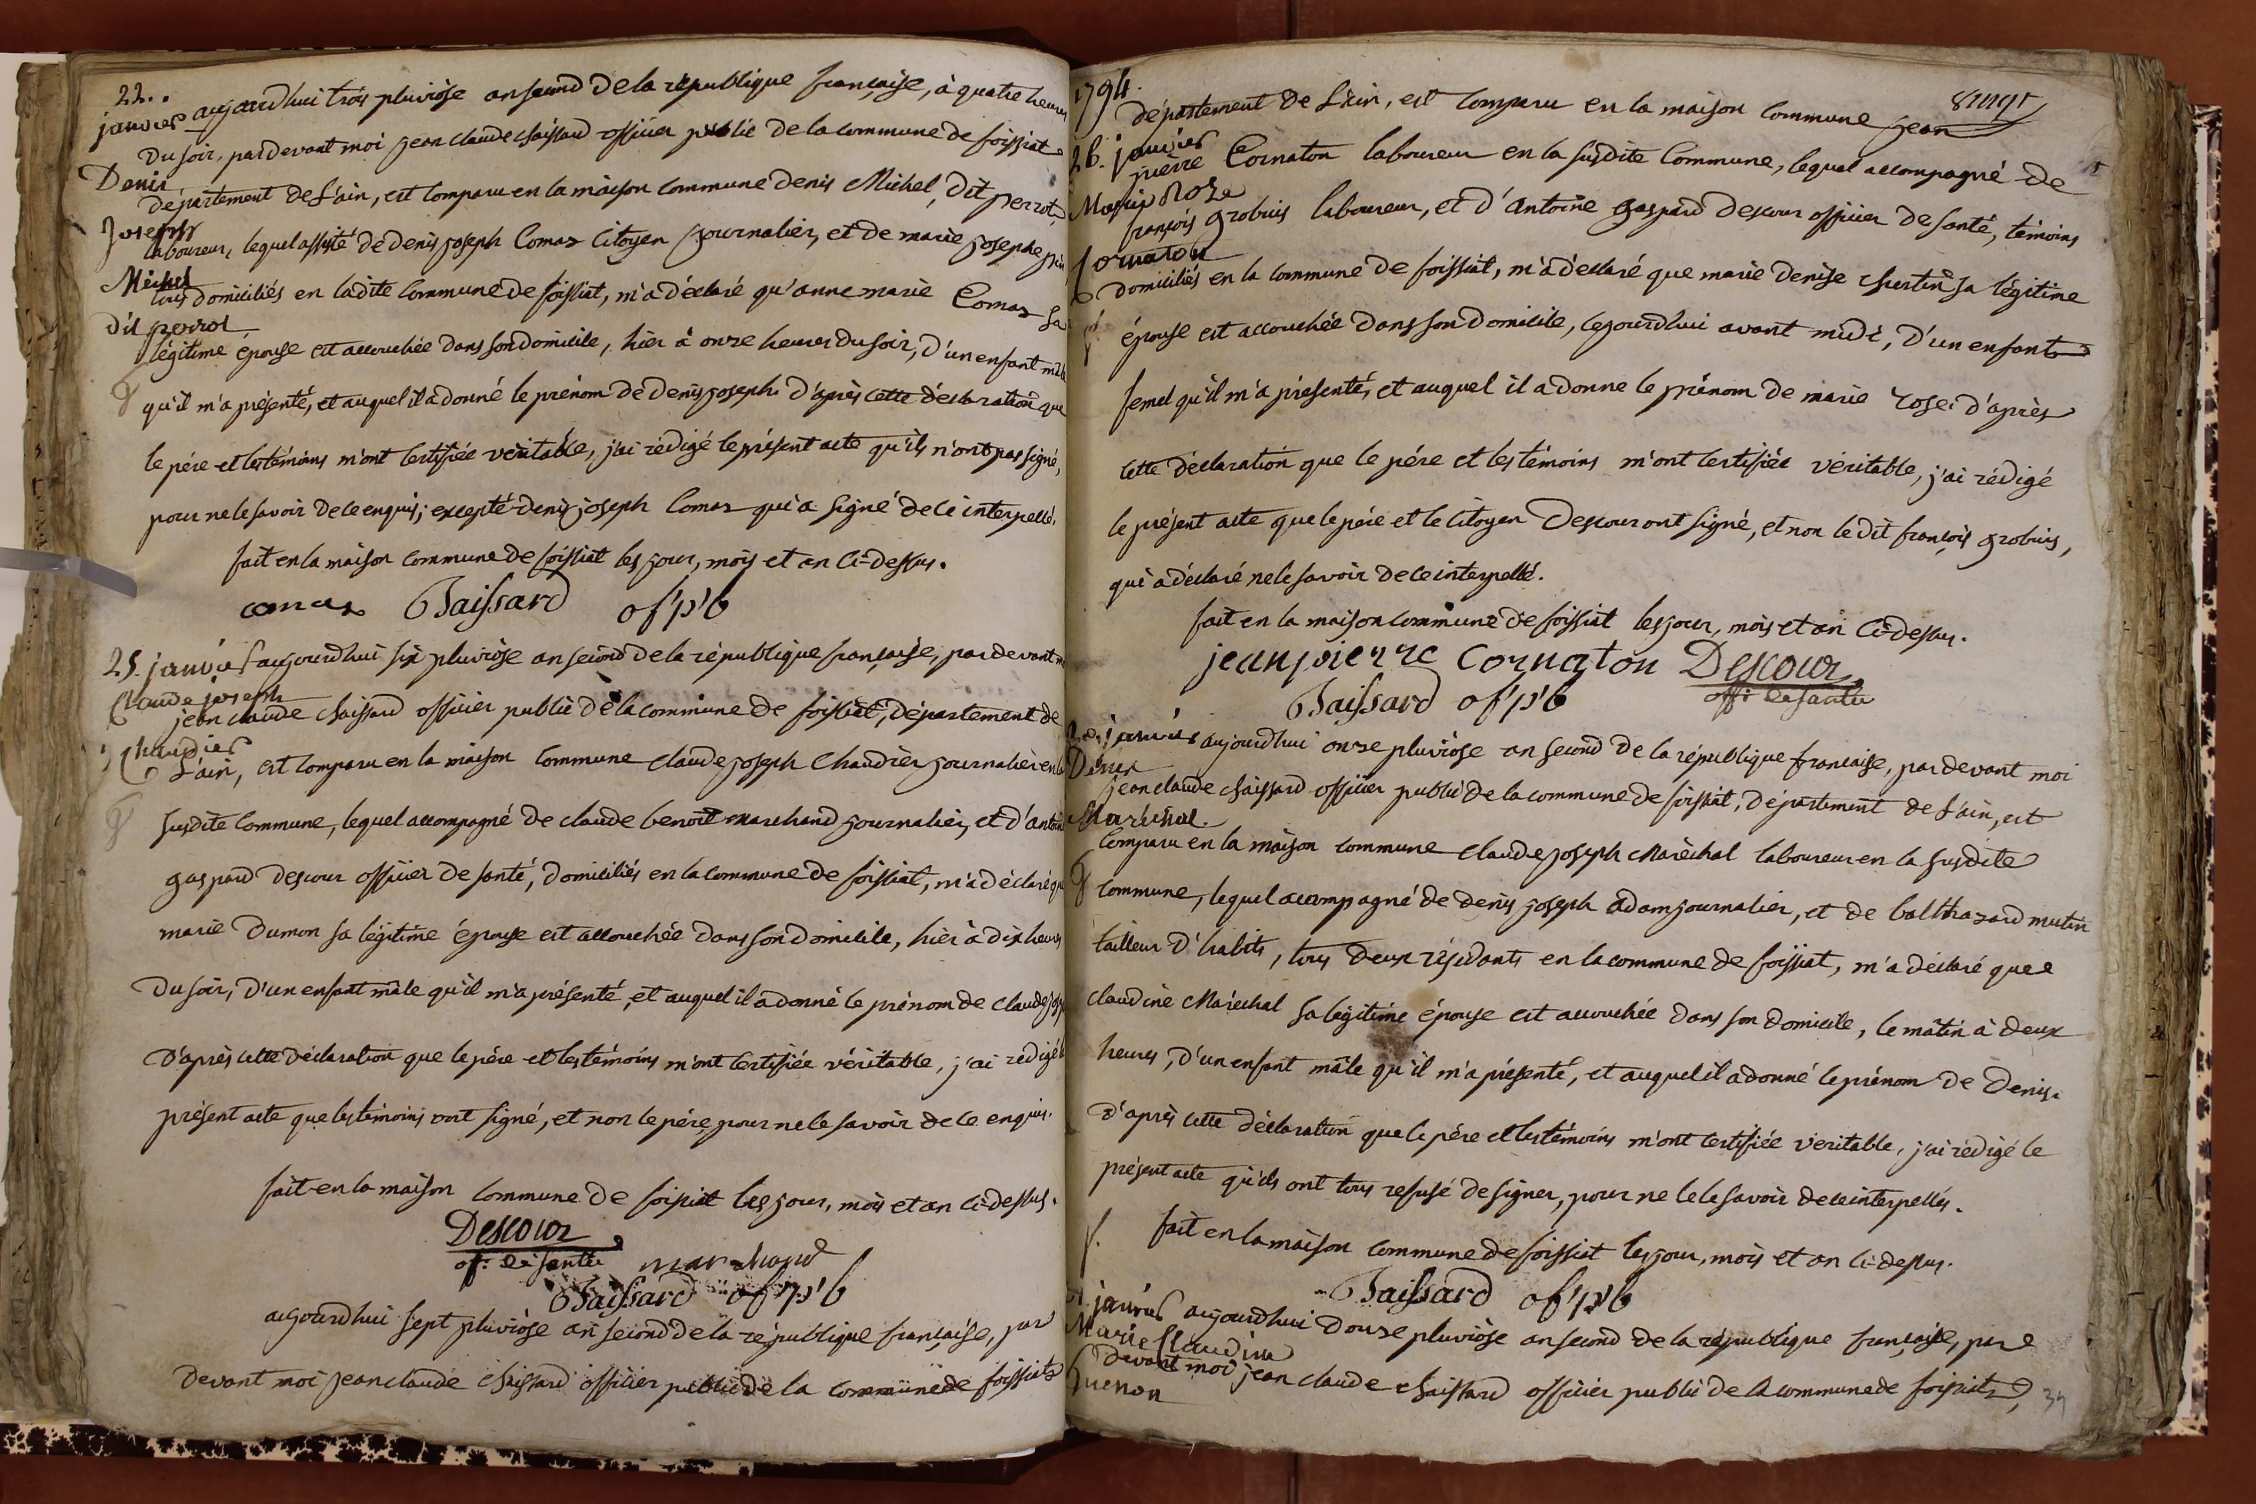 22..
janvier
Denis
Joseph
Michel
dit perrot
aujourdhui trois pluviôse an second de la république française, à quatre heures
du soir, pardevant moi jean claude chaissard officier public de la commune de foissiat
département de L'ain, est comparu en la maison commune denis Michel, dit perrot,
laboureur, lequel assisté de denis joseph Comas citoyen journalier, et de marie josephe
tous domiciliés en ladite commune de foissiat, m'a déclaré qu'anne marie Comas sa
légitime épouse est accouchée dans son domicile, hier à onze heures du soir, d'un enfant mâle
qu'il m'a présenté, et auquel il a donné le prénom de denis joseph. d'après cette déclaration que
le pére et les témoins m'ont certifiée véritable, j'ai rédigé le présent acte qu'ils n'ont pas signé,
pour ne le savoir de ce enquis; excepté denis joseph Comas qui a signé de ce interpellé.
fait en la maison commune de foissiat les jour, mois et an ci-dessus.
comas Chaissard of'p'b
25. janvier
Claude joseph
Chaudier
aujourdhui six pluviôse an second de la république française, pardevant
jean claude chaissard officier public de la commune de foissiat, département de
L'ain, est comparu en la maison commune claude joseph Chaudier journalier en la
susdite commune, lequel accompagné de claude benoît marchand journalier, et d'antoine
gaspard descour officier de santé, domiciliés en la commune de foissiat, m'a déclaré que
marie Dumon sa légitime épouse est accouchée dans son domicile, hier à dix heures
du soir, d'un enfant mâle qu'il m'a présenté, et auquel il a donné le prénom de claude joseph
d'après cette déclaration que le pére et les témoins m'ont certifiée véritable, j'ai rédigé
présent acte que les témoins ont signé, et non le pére, pour ne le savoir de ce enquis.
fait en la maison commune de foissiat les jour, mois et an ci-dessus.
Descour
of: de santée marchand
Chaissard of'p'b
aujourdhui sept pluviôse an second de la république française, par
devant moi jean claude chaissard officier public de la commune de foissiat
1794.
26. janvier
Marie Roze
Cornaton
département de L'ain, est comparu en la maison commune jean
pierre Cornaton laboureur en la susdite commune, lequel accompagné de
françois grobuis laboureur, et d'antoine gaspard descour officier de santé, témoins
domiciliés en la commune de foissiat, m'a déclaré que marie denise sa légitime
épouse est accouchée dans son domicile, cejourdhui avant midi, d'un enfant
femel qu'il m'a présenté, et auquel il a donné le prénom de marie rose. d'après
cette déclaration que le pére et les témoins m'ont certifiée véritable, j'ai rédigé
le présent acte que le pére et le citoyen Descour ont signé, et non le dit françois grobuis,
qui a déclaré ne le savoir de ce interpellé.
fait en la maison commune de foissiat les jour, mois et an ci-dessus.
jean pierre Cornaton Descour
Chaissard of'p'b off: de santée
janvier
Denis
Maréchal.
aujourdhui onze pluviôse an second de la république française, pardevant moi
jean claude chaissard officier public de la commune de foissiat, département de L'ain, est
comparu en la maison commune claude joseph Maréchal laboureur en la susdite
commune, lequel accompagné de denis joseph adam journalier, et de balthazard mutin
tailleur d'habits, tous deux résidants en la commune de foissiat, m'a déclaré que
claudine Maréchal sa légitime épouse est accouchée dans son domicile, le matin à deux
heures, d'un enfant mâle qu'il m'a présenté, et auquel il a donné le prénom de Denis.
d'après cette déclaration que le pére et les témoins m'ont certifiée véritable, j'ai rédigé le
présent acte qu'ils ont tous refusé de signer, pour ne le le savoir de ce interpellés.
fait en la maison commune de foissiat les jour, mois et an ci-dessus.
Chaissard of'p'b
janvier
Marie Claudine
Guenon
aujourdhui douze pluviôse an second de la république française, par
devant moi jean claude chaissard officier public de la commune de foissiat,